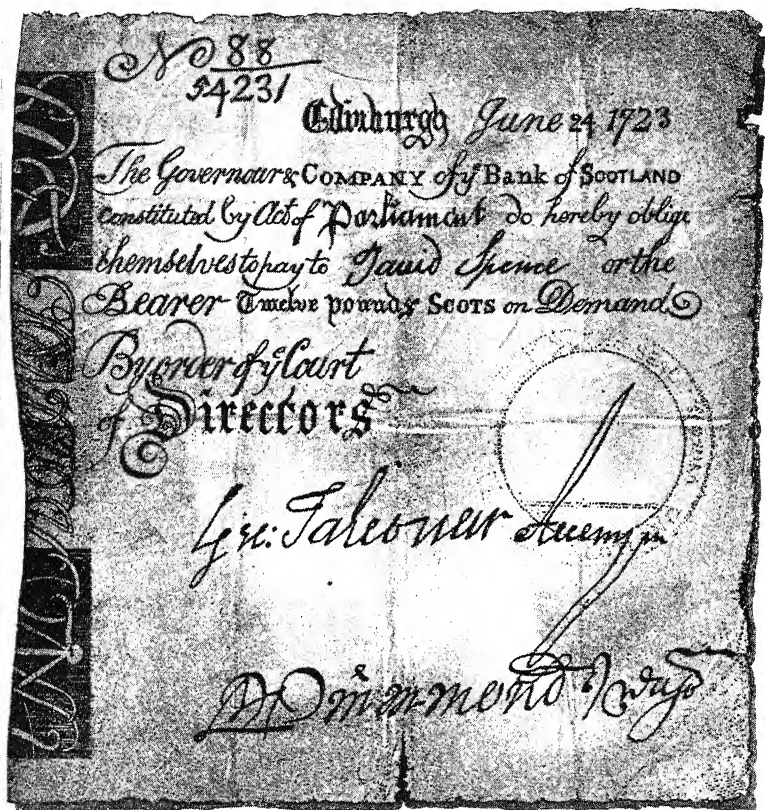 No 88
54231
Edinburgh June 24 1723
The Governour & COMPANY of yͤ Bank of SCOTLAND
Constituted by Act of Parliament do hereby oblige
themselves to pay to David Spence or the
Bearer Twelve pounds SCOTS on Demand
By order of yͤ Court
of Directors
Drummond